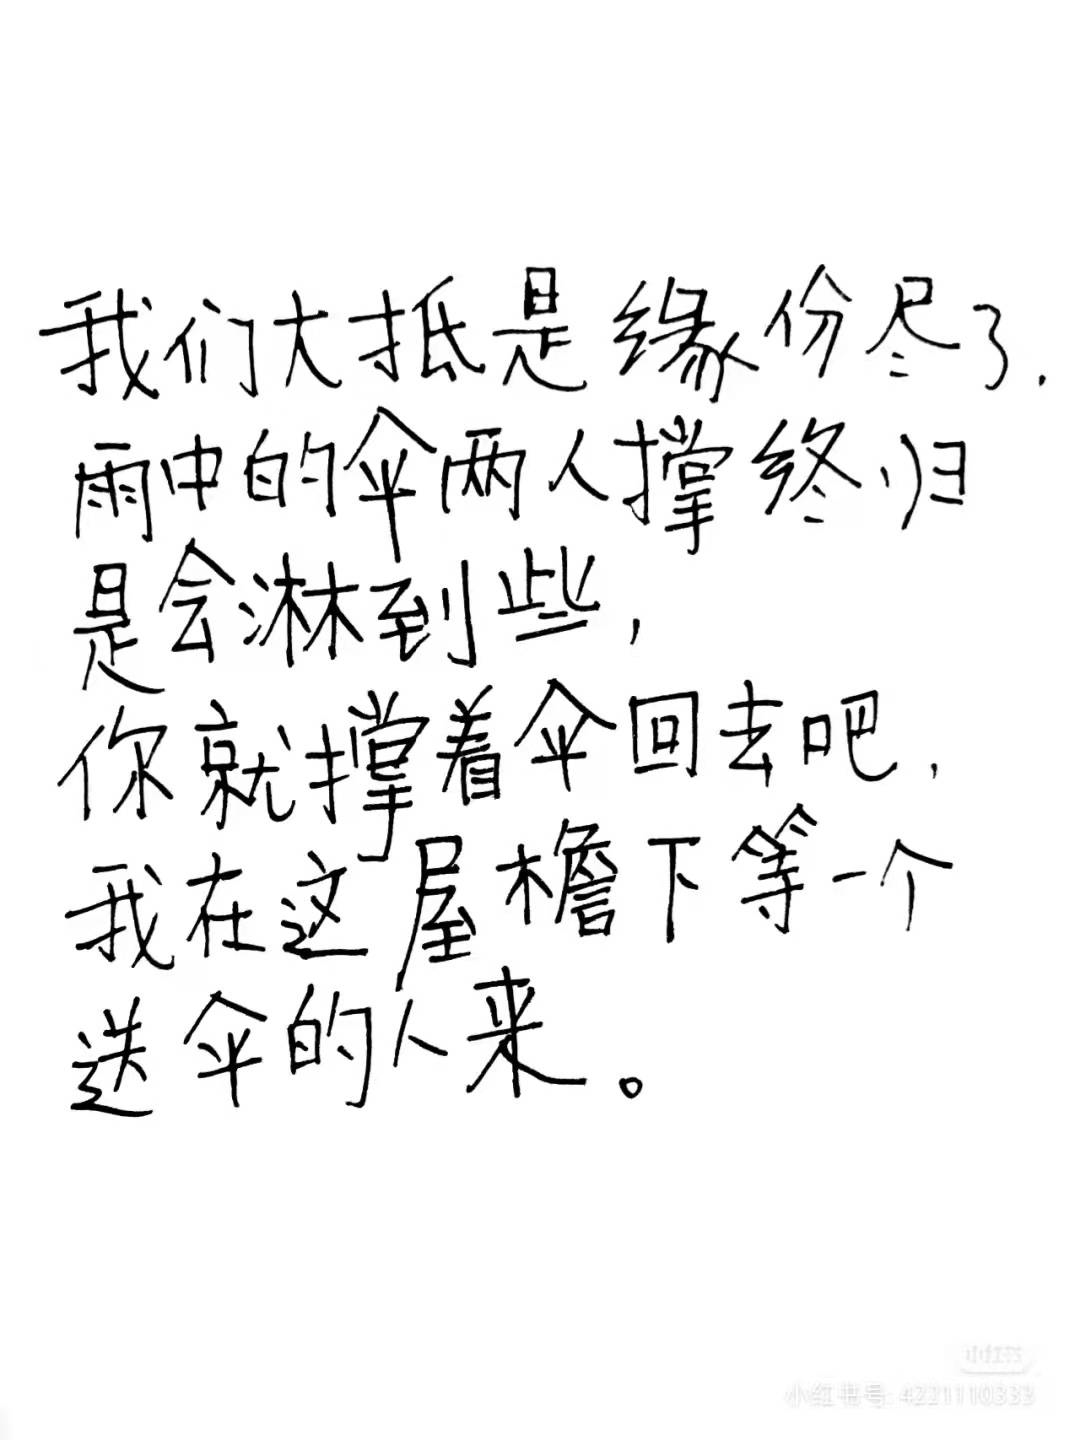 我们大抵是缘份尽了.
雨中的伞两人撑终归
是会淋到些,
你就撑着伞回去吧,
我在这屋檐下等一个
送伞的人来。
小红书
小红书号: 4221110333